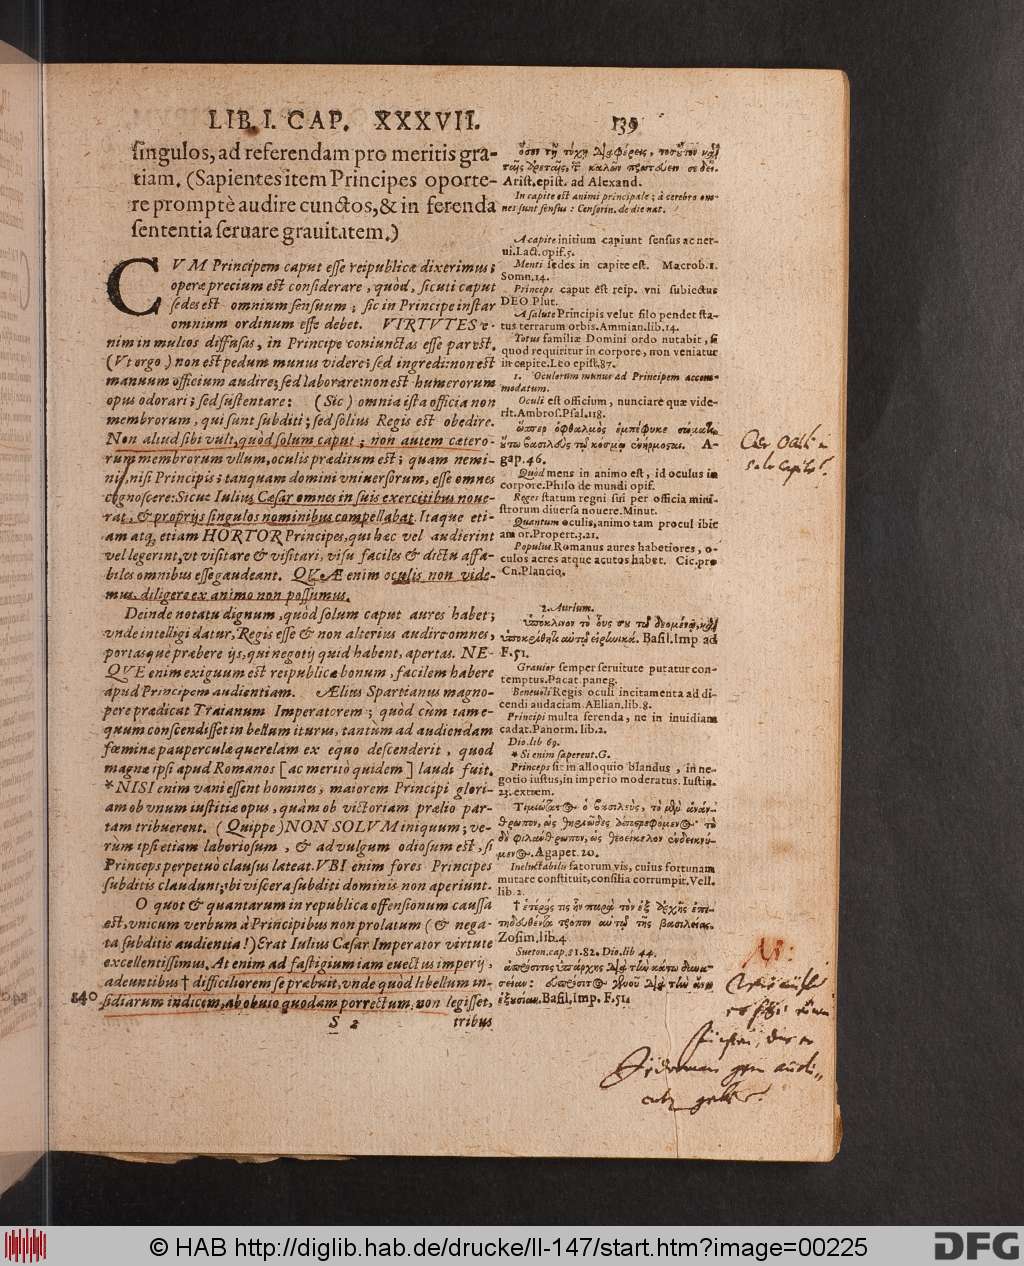 LIB. I. CAP. XXXVII.
139
singulos, ad referendam pro meritis gra-
tiam. (Sapientes item Principes oporte-
re promptè audire cunctos, & in ferenda
sententia seruare grauitatem.)
CVM Principem caput esse reipublicæ dixerimus;
operæ precium est considerare, quòd, sicuti caput
sedes est omnium sensuum; sic in Principe instar
omnium ordinum esse debet. VIRTVTES e-
nim in multos diffusas, in Principe coniunctas esse par est.
(Vt ergo) non est pedum munus videre; sed ingredi: non est
manuum officium audire; sed laborare: non est humerorum
opus odorari; sed sustentare: (Sic) omnia ista officia non
membrorum, qui sunt subditi; sed solius Regis est obedire.
Non aliud sibi vult, quòd solum caput; non autem cætero-
rum membrorum vllum, oculis præditum est; quam nemi-
nis, nisi Principis; tanquam domini vniuersorum, esse omnes
cognoscere: Sicut Iulius Cæsar omnes in suis exercitibus noue-
rat, & proprijs singulos nominibus compellabat. Itaque eti-
am atq; etiam HORTOR Principes, qui hæc vel audierint
vel legerint, vt visitare & visitari, visu faciles & dictu affa-
biles omnibus esse gaudeant. QVÆ enim oculis non vide-
mus, diligere ex animo non possumus.
Deinde notatu dignum, quòd solum caput aures habet;
vnde intelligi datur, Regis esse & non alterius audire omnes,
portasquè præbere ijs, qui negotij quid habent, apertas. NE-
QVE enim exiguum est reipublicæ bonum, facilem habere
apud Principem audientiam. Ælius Spartianus magno-
pere prædicat Traianum Imperatorem; quòd cùm iam e-
quum conscendisset in bellum iturus, tantùm ad audiendam
fœminæ pauperculæ querelam ex equo descenderit, quod
magnæ ipsi apud Romanos [ac meritò quidem] laudi fuit.
*NISI enim vani essent homines, maiorem Principi glori-
am ob vnum iustitiæ opus, quàm ob victoriam prælio par-
tam tribuerent. (Quippe) NON SOLVM iniquum; ve-
rùm ipsi etiam laboriosum, & ad vulgum odiosum est, si
Princeps perpetuò clausus lateat. VBI enim fores Principes
subditis claudunt; ibi viscera subditi dominis non aperiunt.
O quot & quantarum in republica offensionum caussa
est, vnicum verbum à Principibus non prolatum (& nega-
ta subditis audientia!) Erat Iulius Cæsar Imperator virtute
excellentissimus. At enim ad fastigium iam euectus imperij,
adeuntibus † difficiliorem se præbuit, vnde quòd libellum in-
sidiarum indicem, ab obuio quodam porrectum, non legisset,
S 2
tribus
540
Arist. epist. ad Alexand.
In capite est animi principale; à cerebro om-
nes sunt sensus: Censorin. de die nat.
A capite initium capiunt sensus ac ner-
ui. Lact. opif. 5.
Menti sedes in capite est. Macrob. 1.
Somn. 14.
Princeps caput est reip. vni subiectus
DEO Plut.
A salute Principis velut filo pendet sta-
tus terrarum orbis. Ammian. lib. 14.
Totus familiæ Domini ordo nutabit, si
quod requiritur in corpore, non veniatur
in capite. Leo epist. 87.
1. Oculorum munus ad Principem accom-
modatum.
Oculi est officium, nunciare quæ vide-
rit. Ambros. Psal. 118.
ὥσπερ ὀφθαλμὸς ἐμπέφυκε σώματι
οὕτω βασιλεὺς τῷ κόσμῳ ἐνήρμοσται. A-
gap. 46.
Quòd mens in animo est, id oculus in
corpore. Philo de mundi opif.
Reges statum regni sui per officia mini-
strorum diuersa nouere. Minut.
Quantum oculis, animo tam procul ibit
amor. Propert. 3. 21.
Populus Romanus aures habetiores, o-
culos acres atque acutos habet. Cic. pro
Cn. Plancio.
2. Aurium.
Basil. Imp ad
F. 51.
Grauior semper seruitute putatur con-
temptus. Pacat. paneg.
Beneuoli Regis oculi incitamenta ad di-
cendi audaciam. AElian. lib. 8.
Principi multa ferenda, ne in inuidiam
cadat. Panorm. lib. 2.
Dio. lib 69.
* Si enim saperent. G.
Princeps sit in alloquio blandus, in ne-
gotio iustus, in imperio moderatus. Iustin.
23. extrem.
Agapet. 20.
Ineluctabilis fatorum vis, cuius fortunam
mutare constituit, consilia corrumpit. Vell.
lib. 2.
Zosim. lib. 4
Sueton. cap. 81. 82. Dio. lib 44.
Basil. Imp. F. 51.
© HAB http://diglib.hab.de/drucke/ll-147/start.htm?image=00225
DFG